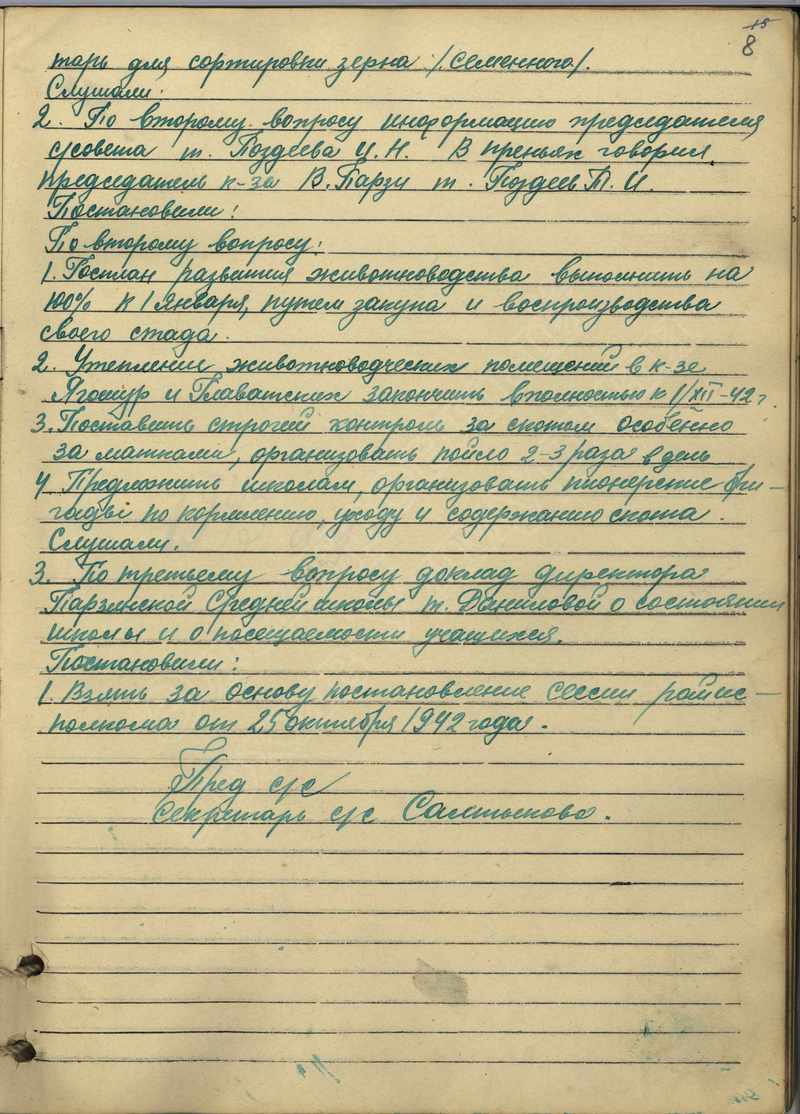 15
8
тарь для сортировки зерна /.семенного/.
Слушали:
2. По второму вопросу информацию председателя
с/совета т. Поздеева И.Н. В преньях говорил
председатель к-за В.Парзи т. Поздеев Т.И.
Постановили:
По второму вопросу:
1. Госплан развития животноводства выполнить на
100% к 1 января, путем закупа и воспроизводства
своего стада.
2. Утепление животноводческих помещений в к-зе
Ягошур и Главатских закончить вполностью к 1/XII-42г.
3. Поставить строгий контроль за скотом особенно
за матками, организовать пойло 2-3 раза в день
4 Предложить школам, организовать пионерские бри-
гады по кормлению, уходу и содержанию скота.
Слушали.
3. По третьему вопросу доклад директора
Парзинской средней школы т. Даниловой о состоянии
школы и о посещаемости учащихся.
Постановили:
1. Взять за основу постановление сессии райис-
полкома от 25 октября 1942 года.
Пред с/с
Секретарь с/с Салтыкова.